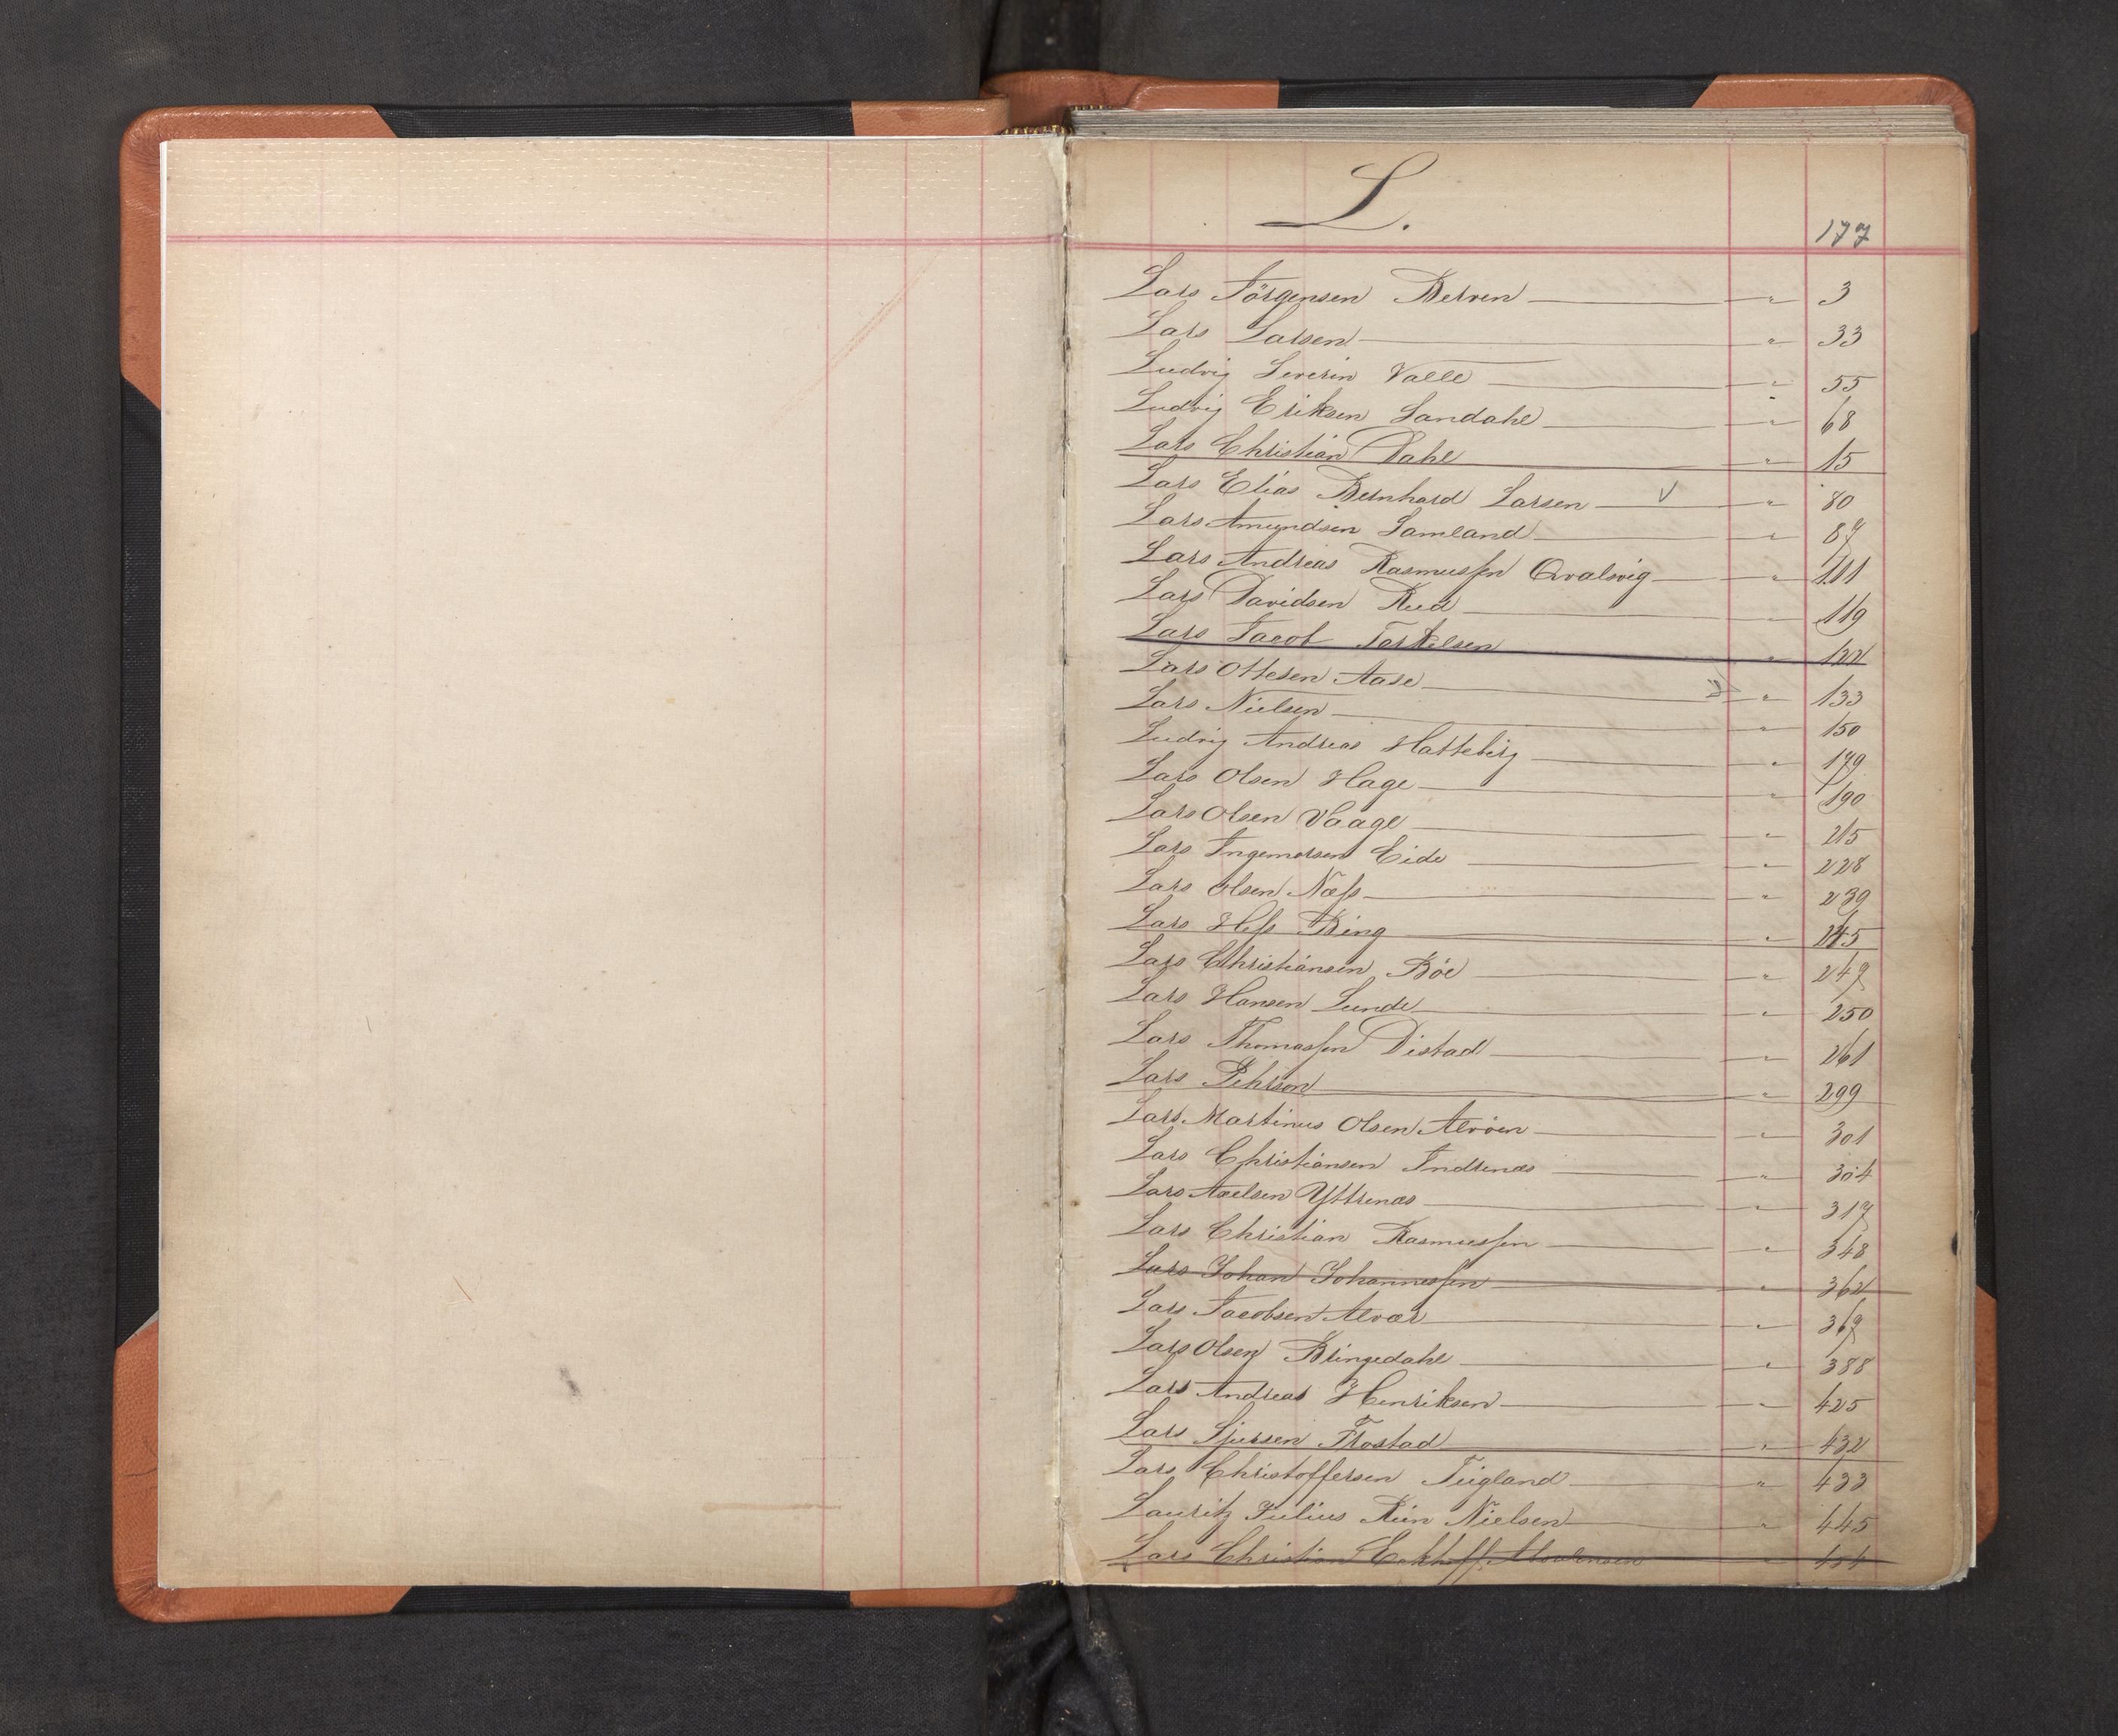 L.
177
Lars Jörgensen Berven " 3
Lars Larsen " 33
Ludvig Severin Valle " 55
Ludvig Eriksen Landahl " 68
Lars Christian Dahl " 15
Lars Elias Bernhard Larsen V " 80
Lars Amundsen Samland " 87
Lars Andreas Rasmussen Qvalsvig " 111
Lars Davidsen Rud " 119
Lars Jacob Torkelsen " 122
Lars Ottesen Aase " 133
Lars Nielsen " 150
Ludvig Andreas Hatteberg " 179
Lars Olsen Hage " 190
Lars Olsen Vaage " 215
Lars Ingemorsen Eide " 228
Lars Olsen Næss " 239
Lars Hess Bing " 245
Lars Christiansen Böe " 247
Lars Hansen Lunde " 250
Lars Thomassen Distad " 261
Lars Pehrson " 299
Lars Martinus Olsen Alvöen " 301
Lars Christiansen Indrenæs " 304
Lars Axelsen Yttrenæs " 317
Lars Christian Rasmussen " 348
Lars Johan Johannessen " 362
Lars Jacobsen Alvær " 367
Lars Olsen Bringedahl " 388
Lars Andreas Henriksen " 425
Lars Sjursen Frostad " 432
Lars Christoffersen Teigland " 433
Lauritz Julius Rein Nielsen " 445
Lars Christian Eckhoff " 454